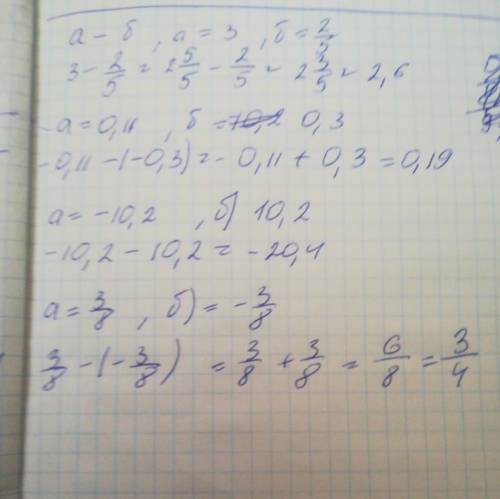 а - б , а = 3 , б = 2/5
3 - 2/5 = 2 5/5 - 2/5 = 2 3/5 = 2,6
-а = 0,11 , б = 0,3
-0,11 - (-0,3) = -0,11 + 0,3 = 0,19
а = -10,2 , б) 10,2
-10,2 - 10,2 = -20,4
а = 3/8 , б) = -3/8
3/8 - (-3/8) = 3/8 + 3/8 = 6/8 = 3/4